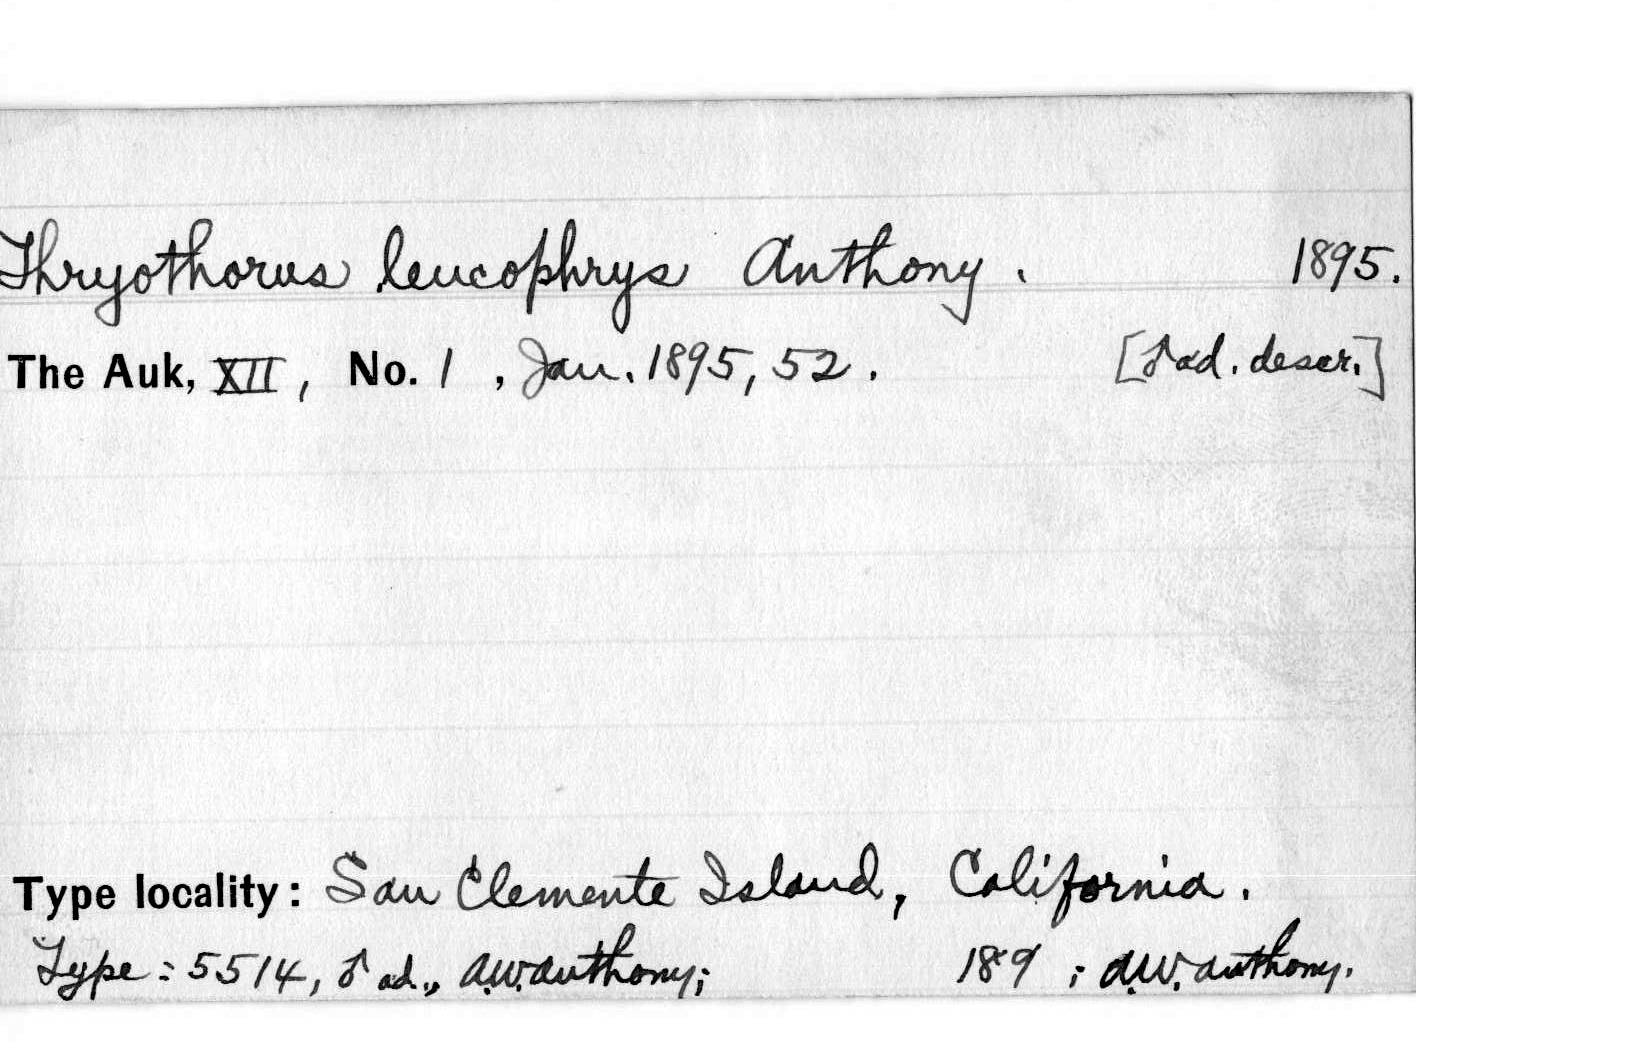 Thryothorus leucophrys Anthony. 1895.
The Auk, XII, No. 1, Jan. 1895, 52. [♂ ad. descr.]
Type locality: San Clemente Island, California.
Type: 5514, ♂ ad., A.W. Anthony; 189 ; A.W. Anthony.